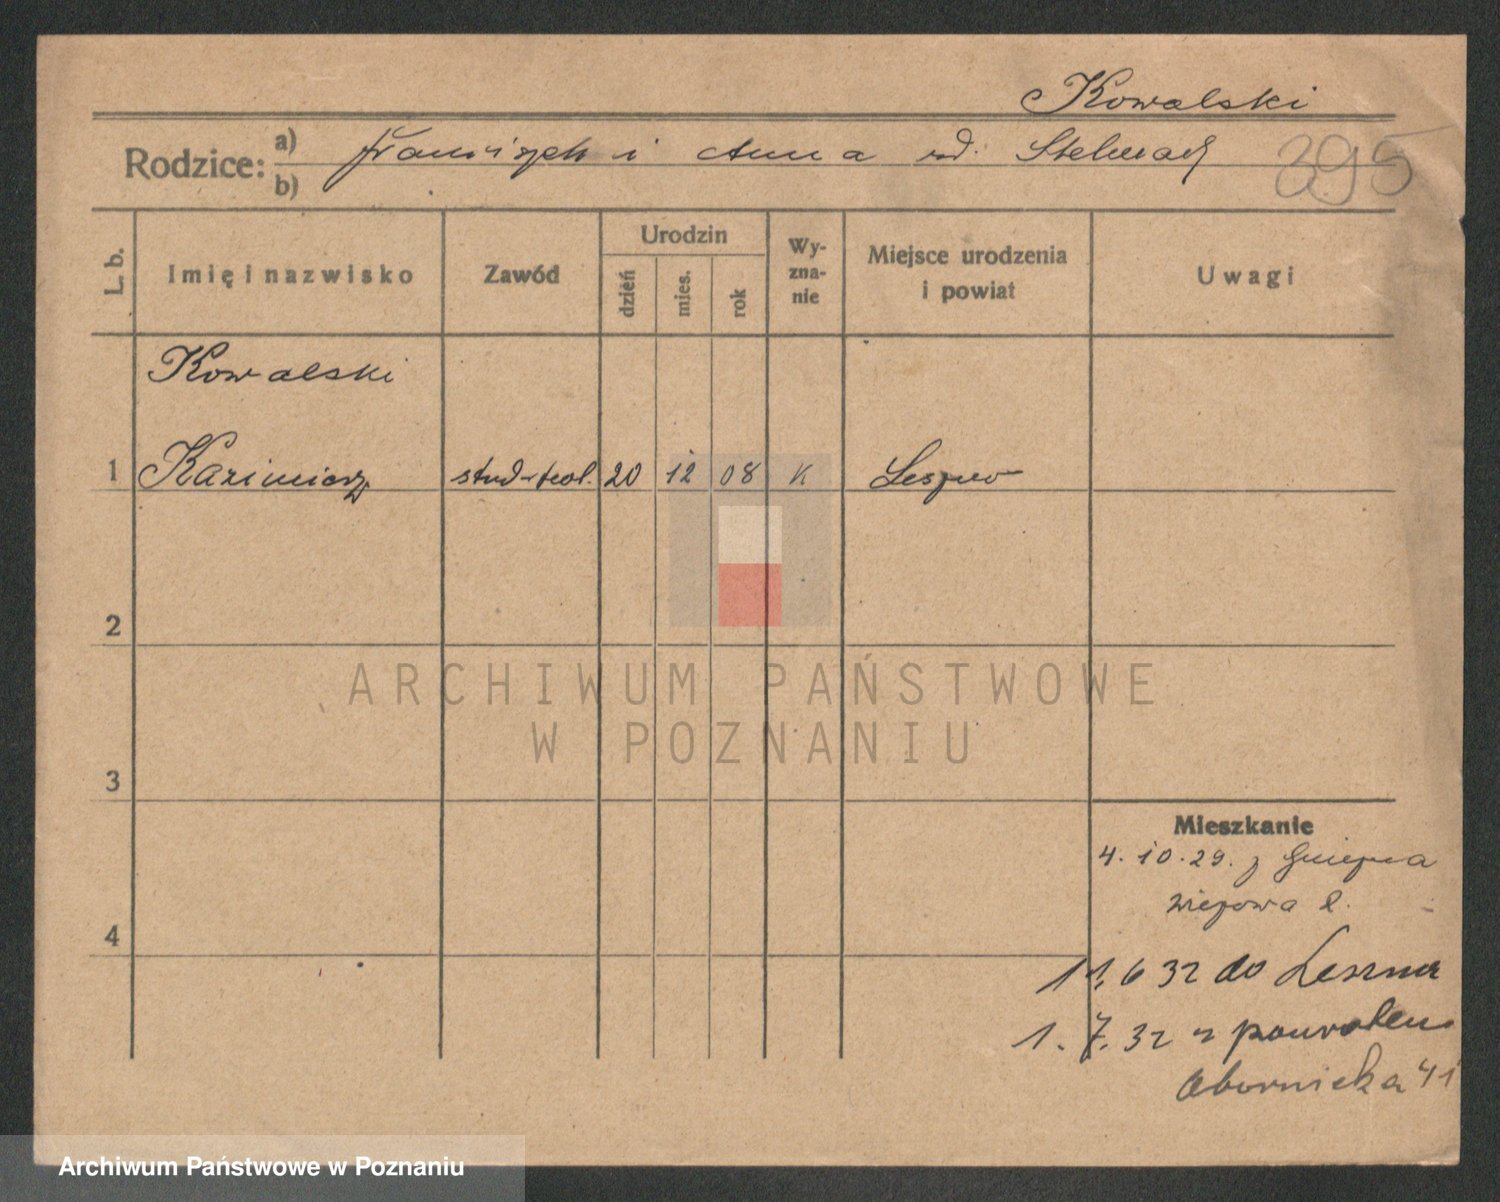 Kowalski
Rodzice: a) Franciszek i Anna ud. Stelmach
b)
395
L. b.
Imię i nazwisko
Zawód
Urodzin
dzień
mies.
rok
Wy-
zna-
nie
Miejsce urodzenia
i powiat
Uwagi
Kowalski
1 Kazimierz stud-teol. 20 12 08 K Leszno
2
3
4
Mieszkanie
4. 10. 29. z Gniezna
11, 6 32 do Leszna
1. 7. 32 z powrotem
Obornicka 41
ARCHIWUM PAŃSTWOWE
W POZNANIU
Archiwum Państwowe w Poznaniu